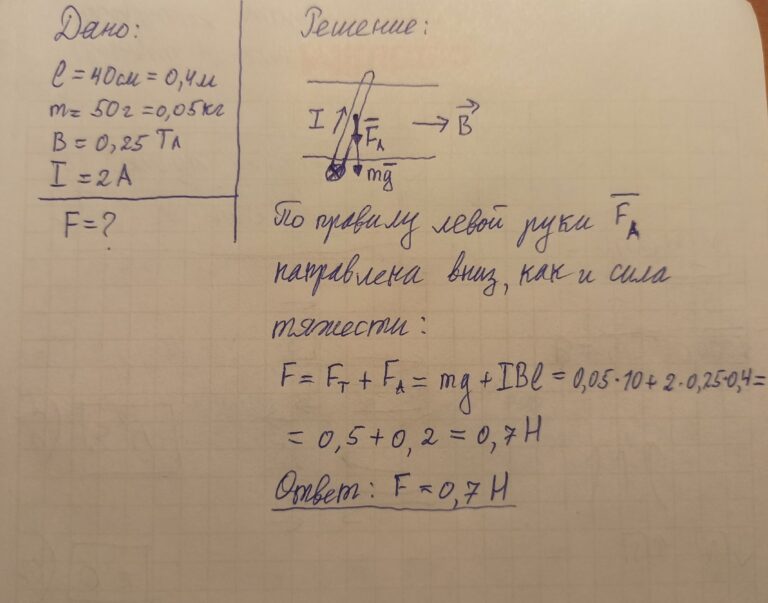 Дано:
l = 40см = 0,4м
m = 50г = 0,05кг
B = 0,25 Тл
I = 2А
F = ?
Решение:
I
F_A
B
mg
По правилу левой руки F_A
направлена вниз, как и сила
тяжести:
F = F_T + F_A = mg + IBl = 0,05·10 + 2·0,25·0,4 =
= 0,5 + 0,2 = 0,7 Н
Ответ: F = 0,7 Н